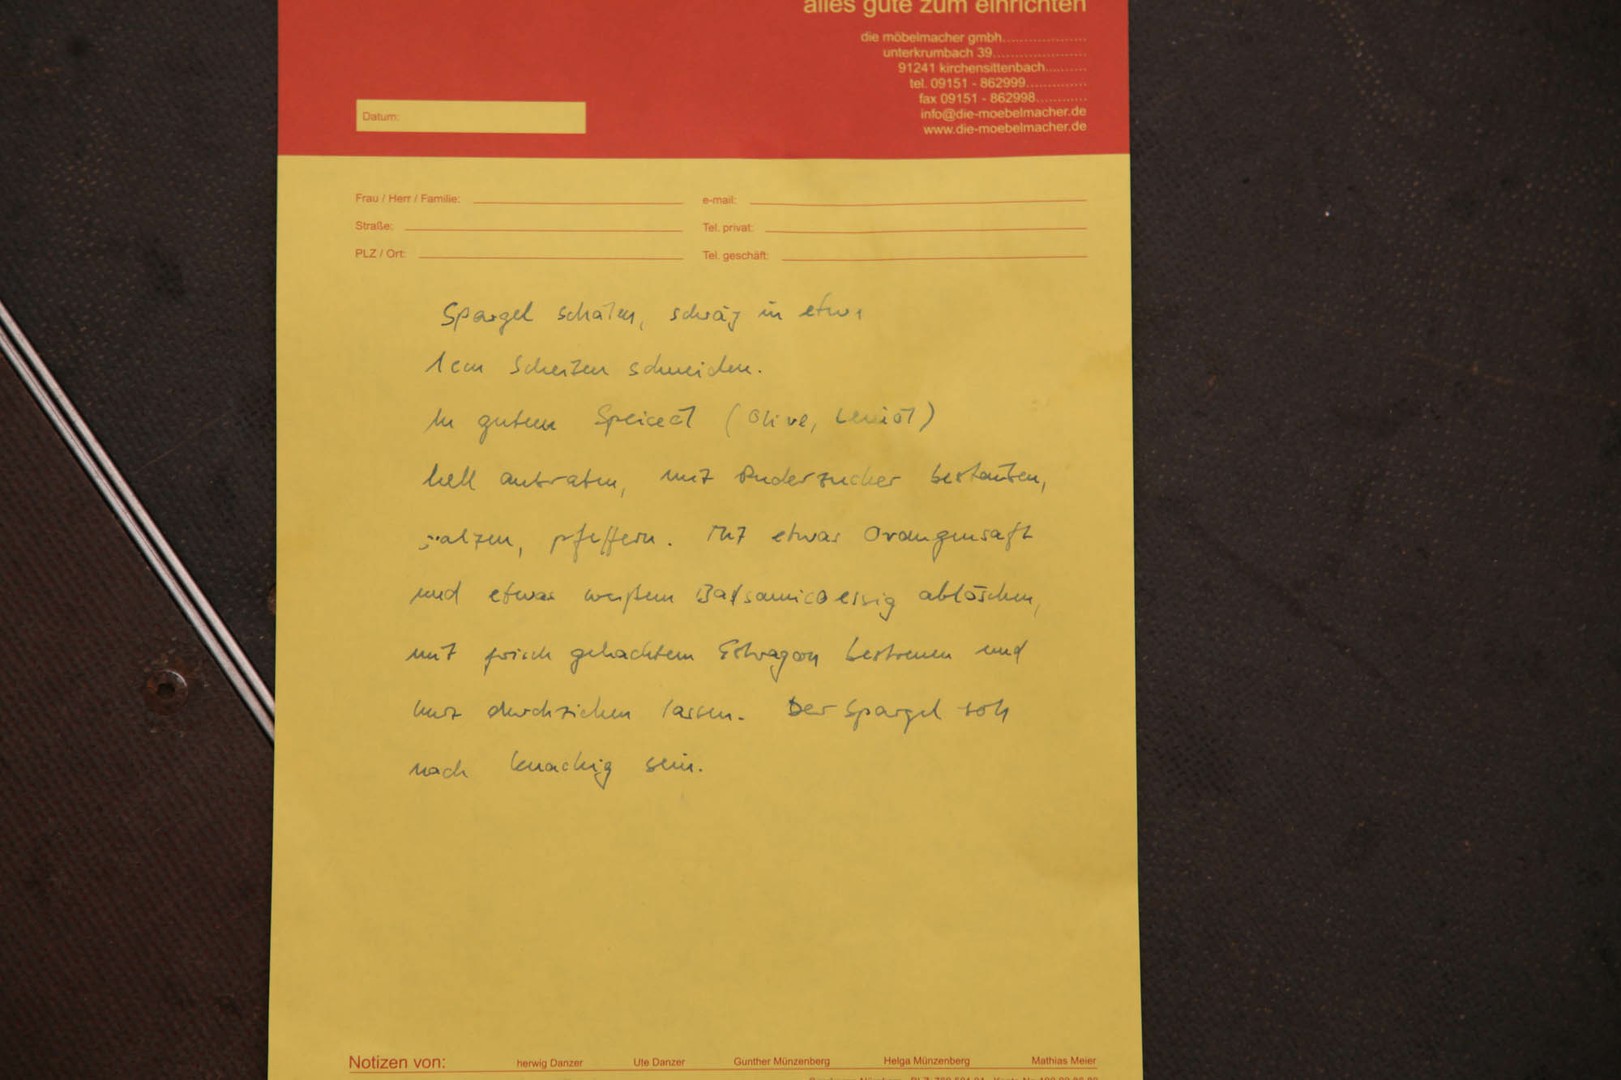 alles gute zum einrichten
die möbelmacher gmbh...................
unterkrumbach 39.....................
91241 kirchensittenbach.........
tel. 09151 - 862999..............
fax 09151 - 862998............
info@die-moebelmacher.de
www.die-moebelmacher.de
Datum:
Frau / Herr / Familie: e-mail:
Straße: Tel. privat:
PLZ / Ort: Tel. geschäft:
Spargel schälen, schräg in etwa
1cm Scheiben schneiden.
In gutem Speiseöl (Olive, Leinöl)
hell anbraten, mit Puderzucker bestäuben,
salzen, pfeffern. Mit etwas Orangensaft
und etwas weißem Balsamicoessig ablöschen,
mit frisch gehacktem Estragon bestreuen und
kurz durchziehen lassen. Der Spargel soll
noch knackig sein.
Notizen von: herwig Danzer Ute Danzer Gunther Münzenberg Helga Münzenberg Mathias Meier